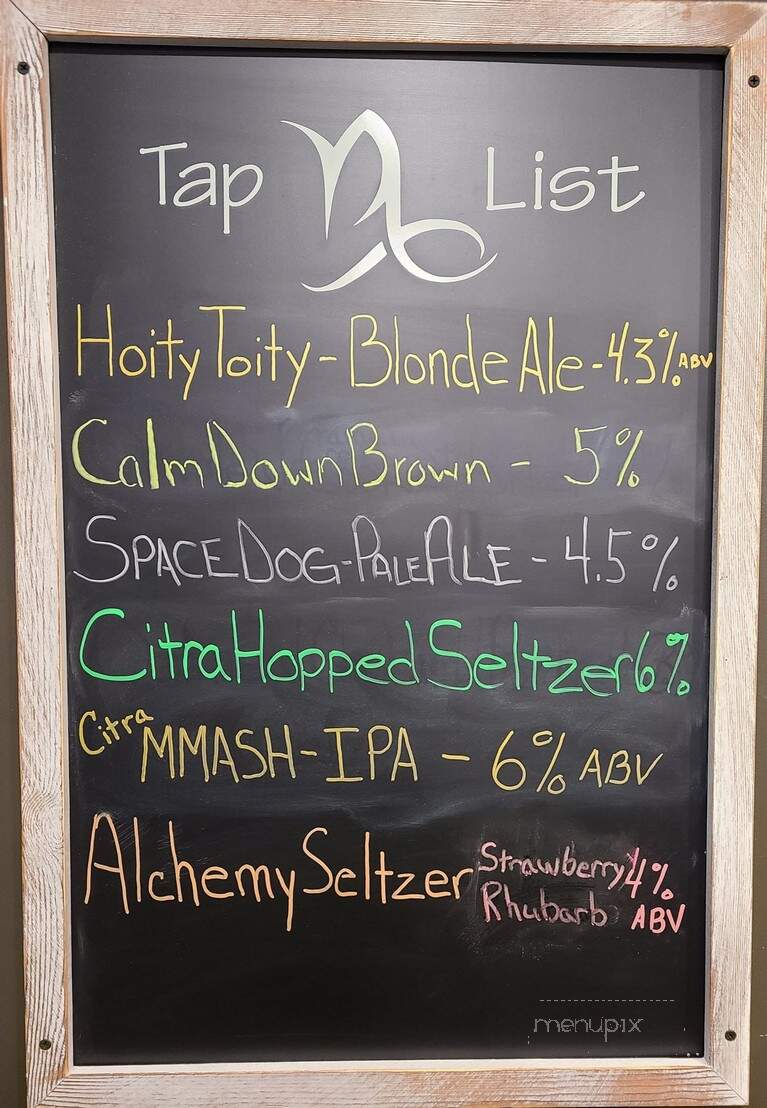 Tap List
Hoity Toity - Blonde Ale - 4.3% ABV
Calm Down Brown - 5%
SPACE DOG - PALE ALE - 4.5%
Citra Hopped Seltzer 6%
Citra MMASH - IPA - 6% ABV
Alchemy Seltzer Strawberry 4%
Rhubarb ABV
menupix